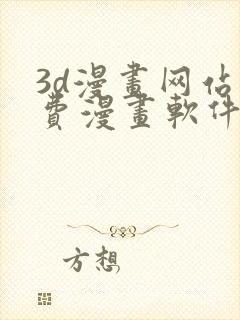 3d漫畫网佔
費漫畫軟件
方想